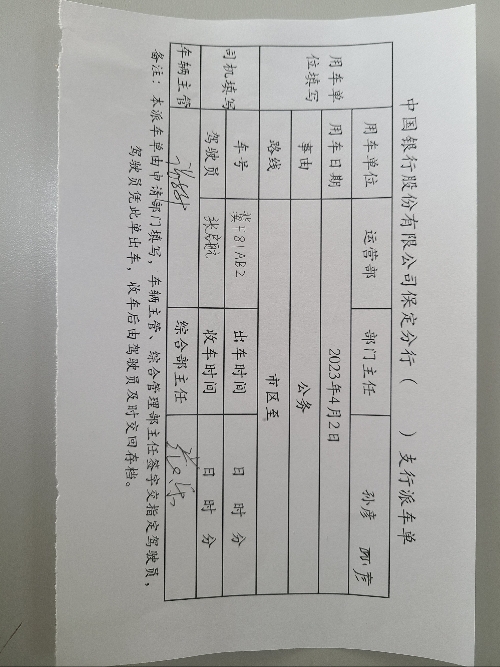 中国银行股份有限公司保定分行（ ）支行派车单
用车单位填写 用车单位 运营部 部门主任 孙彦
用车日期 2023年4月2日
事由 公务
路线 市区至
司机填写 车号 出车时间 日 时 分
驾驶员 收车时间 日 时 分
车辆主管 综合部主任
备注：本派车单由申请部门填写，车辆主管、综合管理部主任签字交指定驾驶员，
驾驶员凭此单出车，收车后由驾驶员及时交回存档。